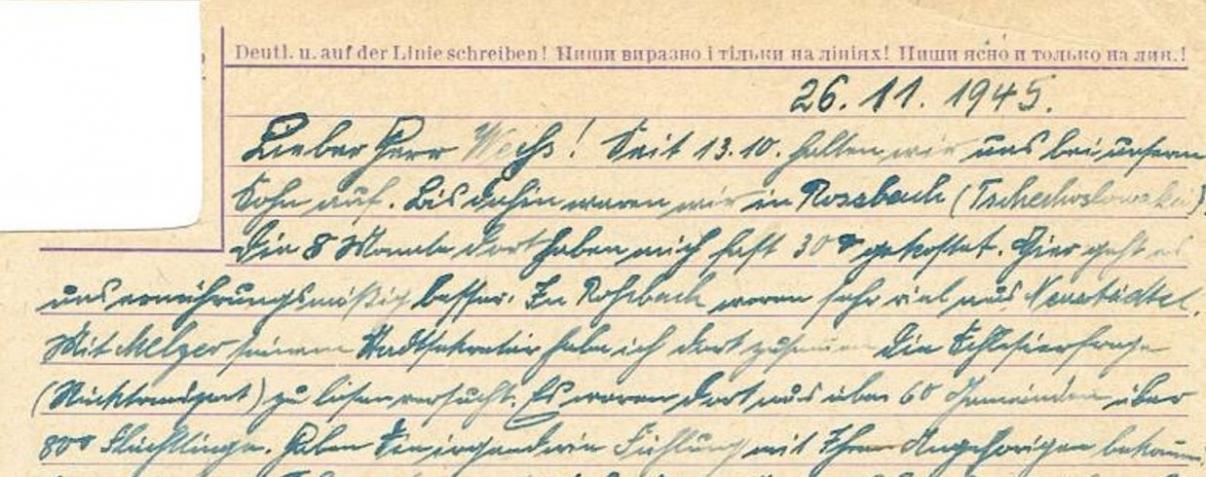 Deutl. u. auf der Linie schreiben! Пиши виразно і тільки на лініях! Пиши ясно и только на лин.!
26. 11. 1945.
Lieber Herr Weihs! Seit 13.10. halten wir uns bei unserm
Sohn auf. Bis dahin waren wir in Rossbach (Tschechoslowakei).
Die 8 Monate dort haben mich fast 30 gekostet. Hier geht es
uns ernährungsmäßig besser. In Roßbach waren sehr viel aus Neustädtel.
Mit Melzer seinem Stadtsekretär habe ich dort zusammen die Schlesierfrage
(Rücktransport) zu lösen versucht. Es waren dort aus über 60 Gemeinden über
800 Flüchtlinge. Haben Sie irgendwie Fühlung mit Ihren Angehörigen bekommen